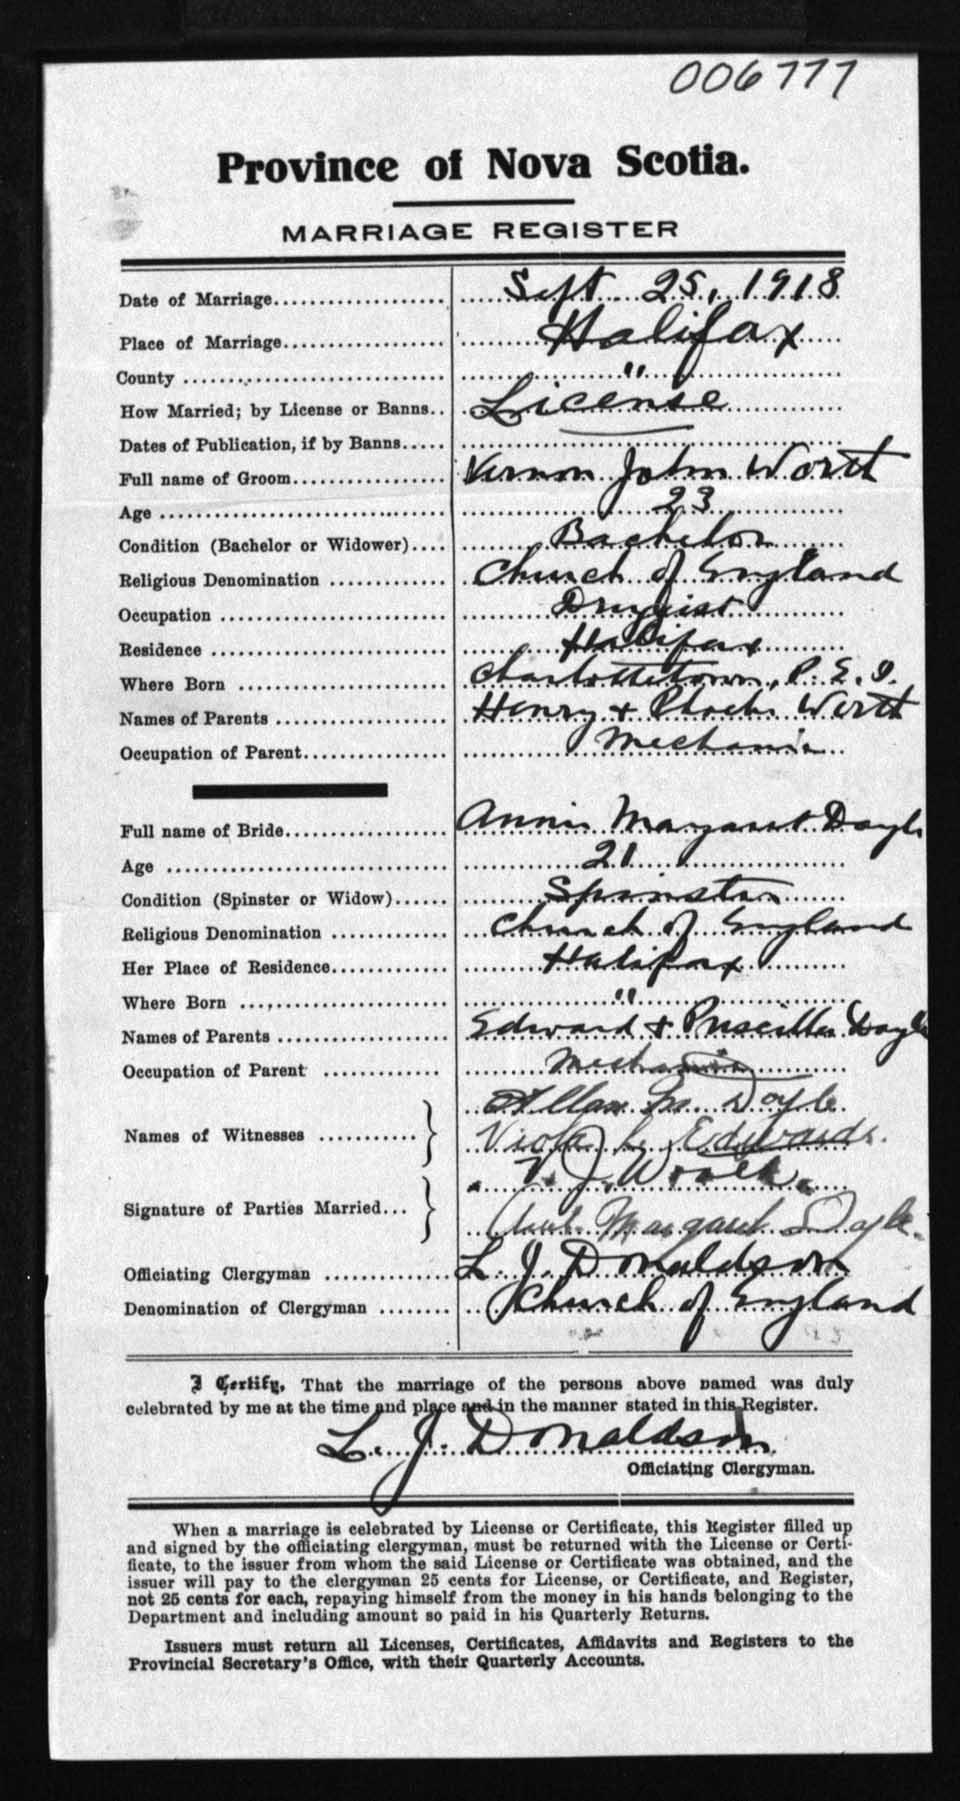 006777
Province of Nova Scotia.
MARRIAGE REGISTER
Date of Marriage.................... Sept 25, 1918
Place of Marriage................... Halifax
County .............................. "
How Married; by License or Banns.. License
Dates of Publication, if by Banns.....
Full name of Groom.................. Vernon John Worth
Age .................................. 23
Condition (Bachelor or Widower).... Bachelor
Religious Denomination ............. Church of England
Occupation .......................... Druggist
Residence ........................... Halifax
Where Born ........................ Charlottetown, P. E. I.
Names of Parents .................... Henry + Phoebe Worth
Occupation of Parent................. Mechanic
Full name of Bride................... Annie Margaret Doyle
Age ................................. 21
Condition (Spinster or Widow)...... Spinster
Religious Denomination ............. Church of England
Her Place of Residence............. Halifax
Where Born ........................ "
Names of Parents .................... Edward + Priscilla Doyle
Occupation of Parent .............. Mechanic
Allan M. Doyle
Names of Witnesses ........... } Viola L. Edwards.
V. J. Worth.
Signature of Parties Married... } Margaret Doyle.
Officiating Clergyman .............. L. J. Donaldson
Denomination of Clergyman ........ Church of England
I Certify, That the marriage of the persons above named was duly
celebrated by me at the time and place and in the manner stated in this Register.
L. J. Donaldson
Officiating Clergyman.
When a marriage is celebrated by License or Certificate, this Register filled up
and signed by the officiating clergyman, must be returned with the License or Certi-
ficate, to the issuer from whom the said License or Certificate was obtained, and the
issuer will pay to the clergyman 25 cents for License, or Certificate, and Register,
not 25 cents for each, repaying himself from the money in his hands belonging to the
Department and including amount so paid in his Quarterly Returns.
Issuers must return all Licenses, Certificates, Affidavits and Registers to the
Provincial Secretary's Office, with their Quarterly Accounts.